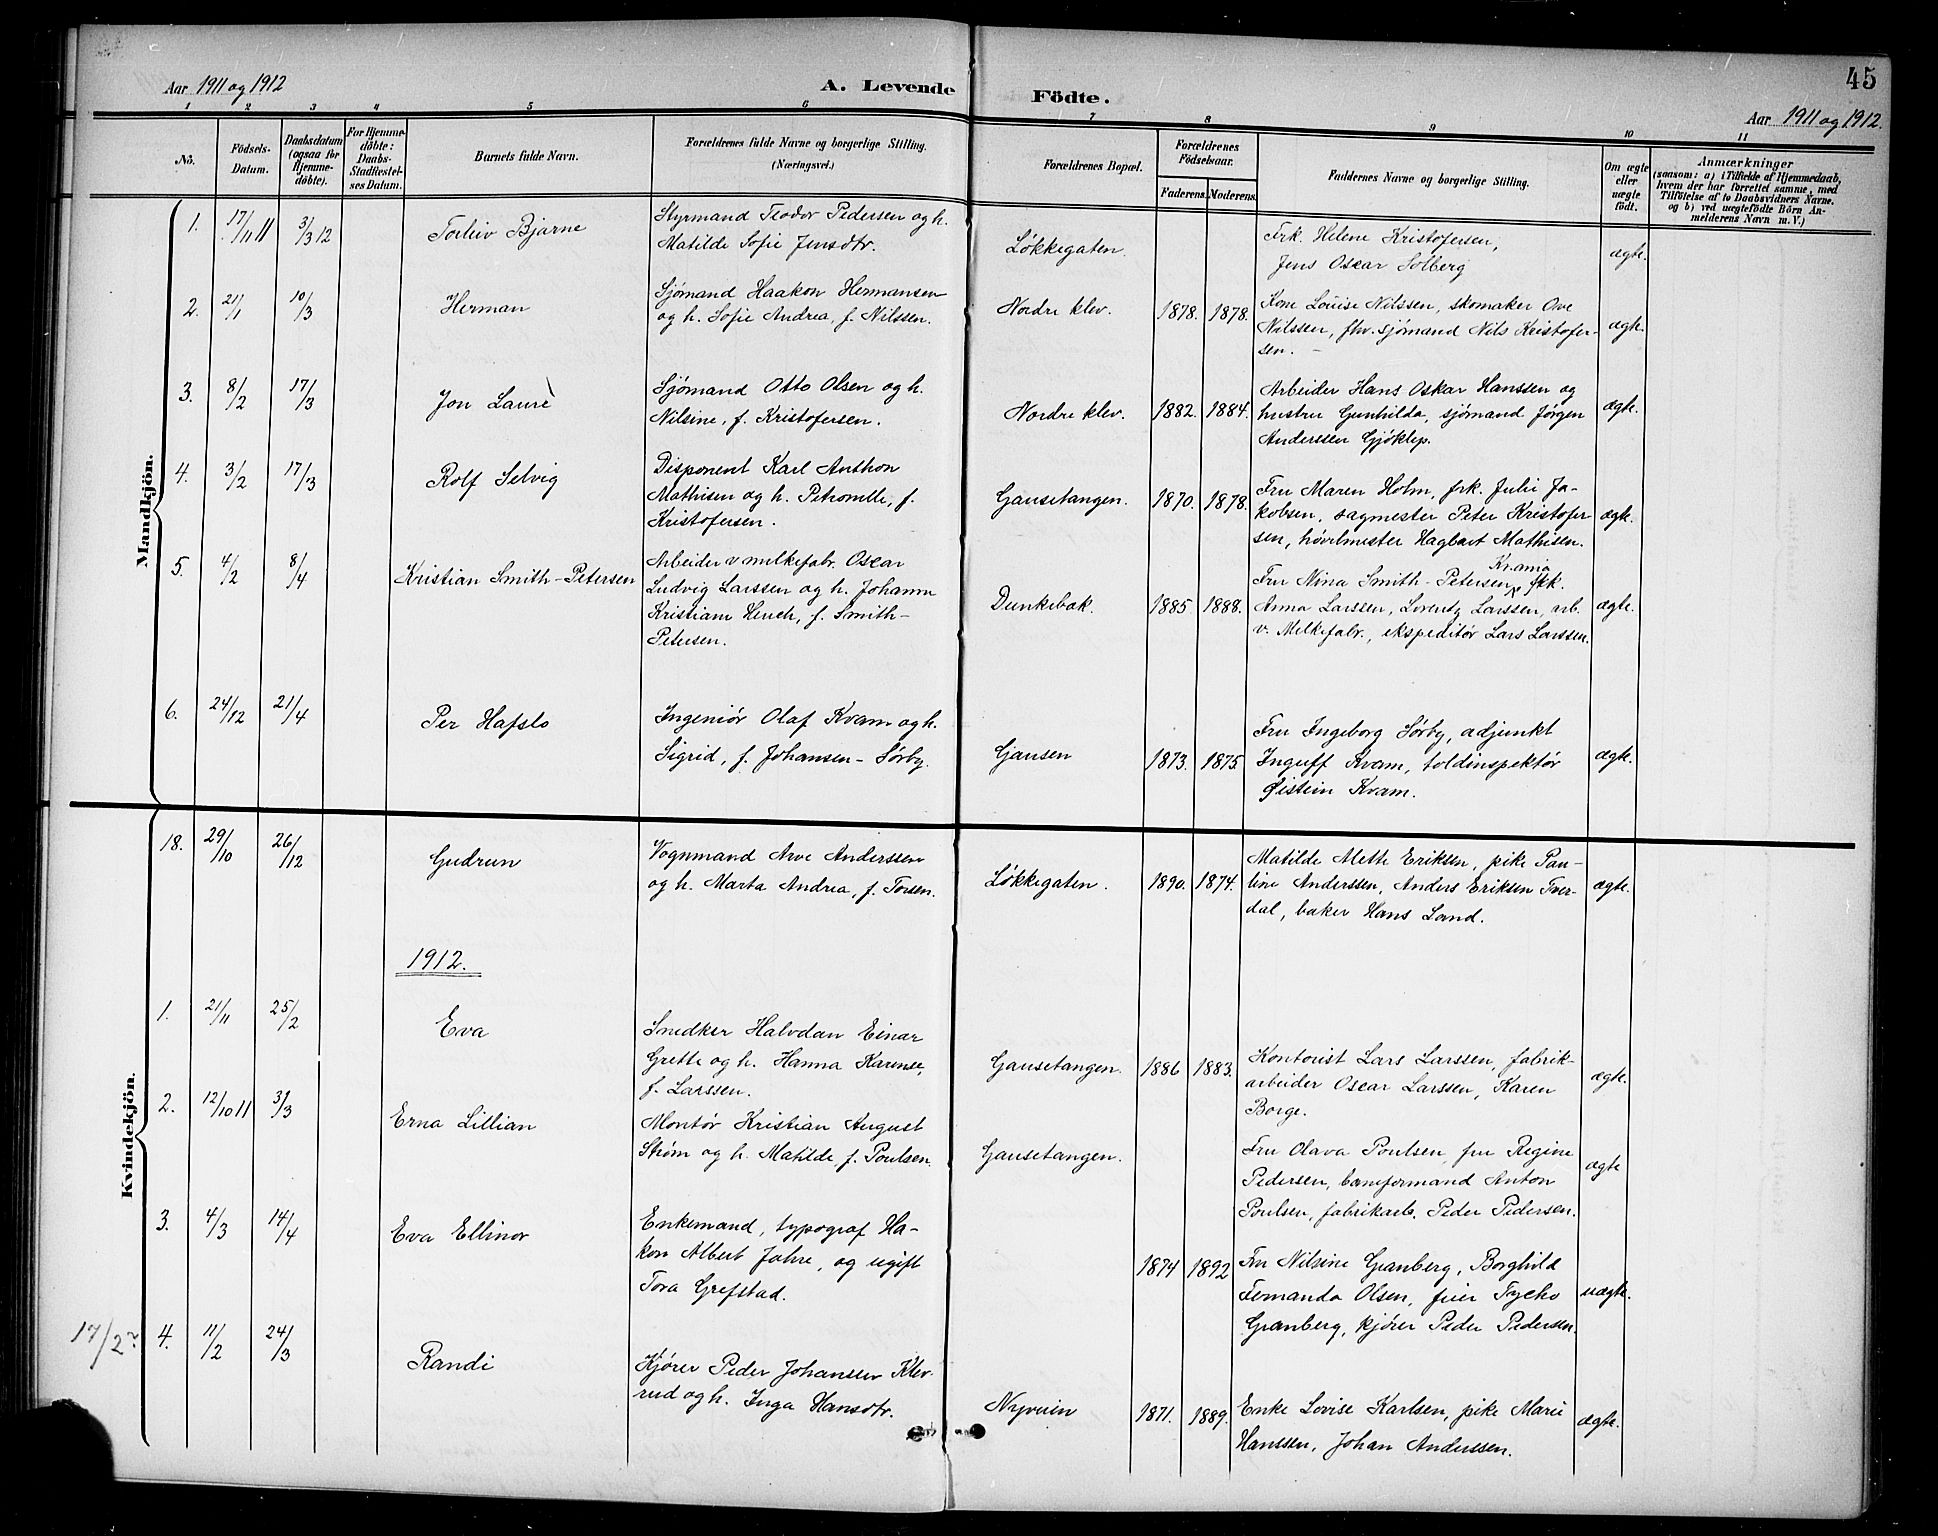 45
Aar 1911 og 1912
A. Levende Födte.
Aar 1911 og 1912.
1 2 3 4 5 6 7 8 9 10 11
No.
Födsels-
Datum.
Daabsdatum
(ogsaa for
Hjemme-
döbte).
For Hjemme-
döbte:
Daabs-
Stadfæstel-
ses Datum.
Barnets fulde Navn.
Forældrenes fulde Navne og borgerlige Stilling.
(Næringsvei.)
Forældrenes Bopæl.
Forældrenes
Födselsaar.
Faderens. Moderens.
Faddernes Navne og borgerlige Stilling.
Om ægte
eller
uægte
födt.
Anmærkninger
(saasom: a) i Tilfælde af Hjemmedaab,
hvem der har forrettet samme, med
Tilföielse af to Daabsvidners Navne.
og b) ved uægtefödte Börn An-
melderens Navn m. V.)
Mandkjön.
1. 17/11 11 3/3 12 Torleiv Bjarne
Styrmand Teodor Pedersen og h.
Matilde Sofie Jensdtr.
Løkkegaten.
Frk. Helene Kristofersen,
Jens Oscar Solberg
ægte.
2. 21/1 10/3 Herman
Sjømand Haakon Hermansen
og h. Sofie Andrea, f. Nilssen.
Nordre klev. 1878. 1878.
Kone Louise Nilssen, skomaker Ove
Nilssen, fhv. sjømand Nils Kristofer-
sen.
ægte.
3. 8/2 17/3 Jon Laurè
Sjømand Otto Olsen og h.
Nilsine, f. Kristofersen.
Nordre klev. 1882. 1884.
Arbeider Hans Oskar Hanssen og
hustru Gunhilda, sjømand Jørgen
Anderssen Gjøklep.
ægte.
4. 3/2 17/3 Rolf Selvig
Disponent Karl Anthon
Mathisen og h. Petronille, f.
Kristofersen.
Gausetangen. 1870. 1878.
Fru Maren Holm, frk. Julie Ja-
kobsen, sagmester Peter Kristofer
sen, høvelmester Hagbart Mathisen.
ægte.
5. 4/2 8/4 Kristian Smith-Petersen
Arbeider v milkefabr. Oscar
Ludvig Larssen og h. Johanne
Kristiane Hench, f. Smith-
Petersen.
Dunkebæk. 1885 1888.
Kramo
Fru Nina Smith-Petersen, frk.
Anna Larssen, Lorentz Larssen, arb.
v. Melkefabr., ekspeditør Lars Larssen.
ægte.
6. 24/12 21/4 Per Hafslo
Ingeniør Olaf Kvam og h.
Sigrid, f. Johansen-Sørby.
Gausen 1873. 1875.
Fru Ingeborg Sørby, adjunkt
Inguff Kvam, toldinspektør
Øistein Kvam.
ægte.
Kvindekjön.
18. 29/10 26/12 Gudrun
Vognmand Arve Anderssen
og h. Marta Andrea, f. Torsen.
Løkkegaten. 1890. 1874.
Matilde Mette Eriksen, pike Pau-
line Anderssen, Anders Eriksen Tver-
dal, baker Hans Land.
ægte.
1912.
1. 21/11 25/2 Eva
Snedker Halvdan Einar
Grette og h. Hanna Karense,
f. Larssen.
Gausetangen. 1886 1883.
Kontorist Lars Larssen, fabrik-
arbeider Oscar Larssen, Karen
Borge.
ægte.
2. 12/10 11 3/3 Erna Lillian
Montør Kristian August
Strøm og h. Matilde, f. Poulsen.
Gausetangen.
Fru Olava Poulsen, fru Regine
Pedersen, banformand Anton
Poulsen, fabrikarb. Peder Pedersen.
ægte
3. 4/3 14/4 Eva Ellinor
Enkemand, typograf Ha-
kon Albert Jahre, og ugift
Tora Grefstad.
1874 1892
Fru Nilsine Granberg, Borghild
Fernanda Olsen, feier Tycho
Granberg, kjører Peder Pedersen.
uægte.
17/2?
4. 11/2 24/3 Randi
Kjører Peder Johansen Klev-
rud og h. Inga Hansdtr.
Nyveien 1871. 1889.
Enke Lovise Karlsen, pike Marie
Hanssen, Johan Anderssen.
ægte.